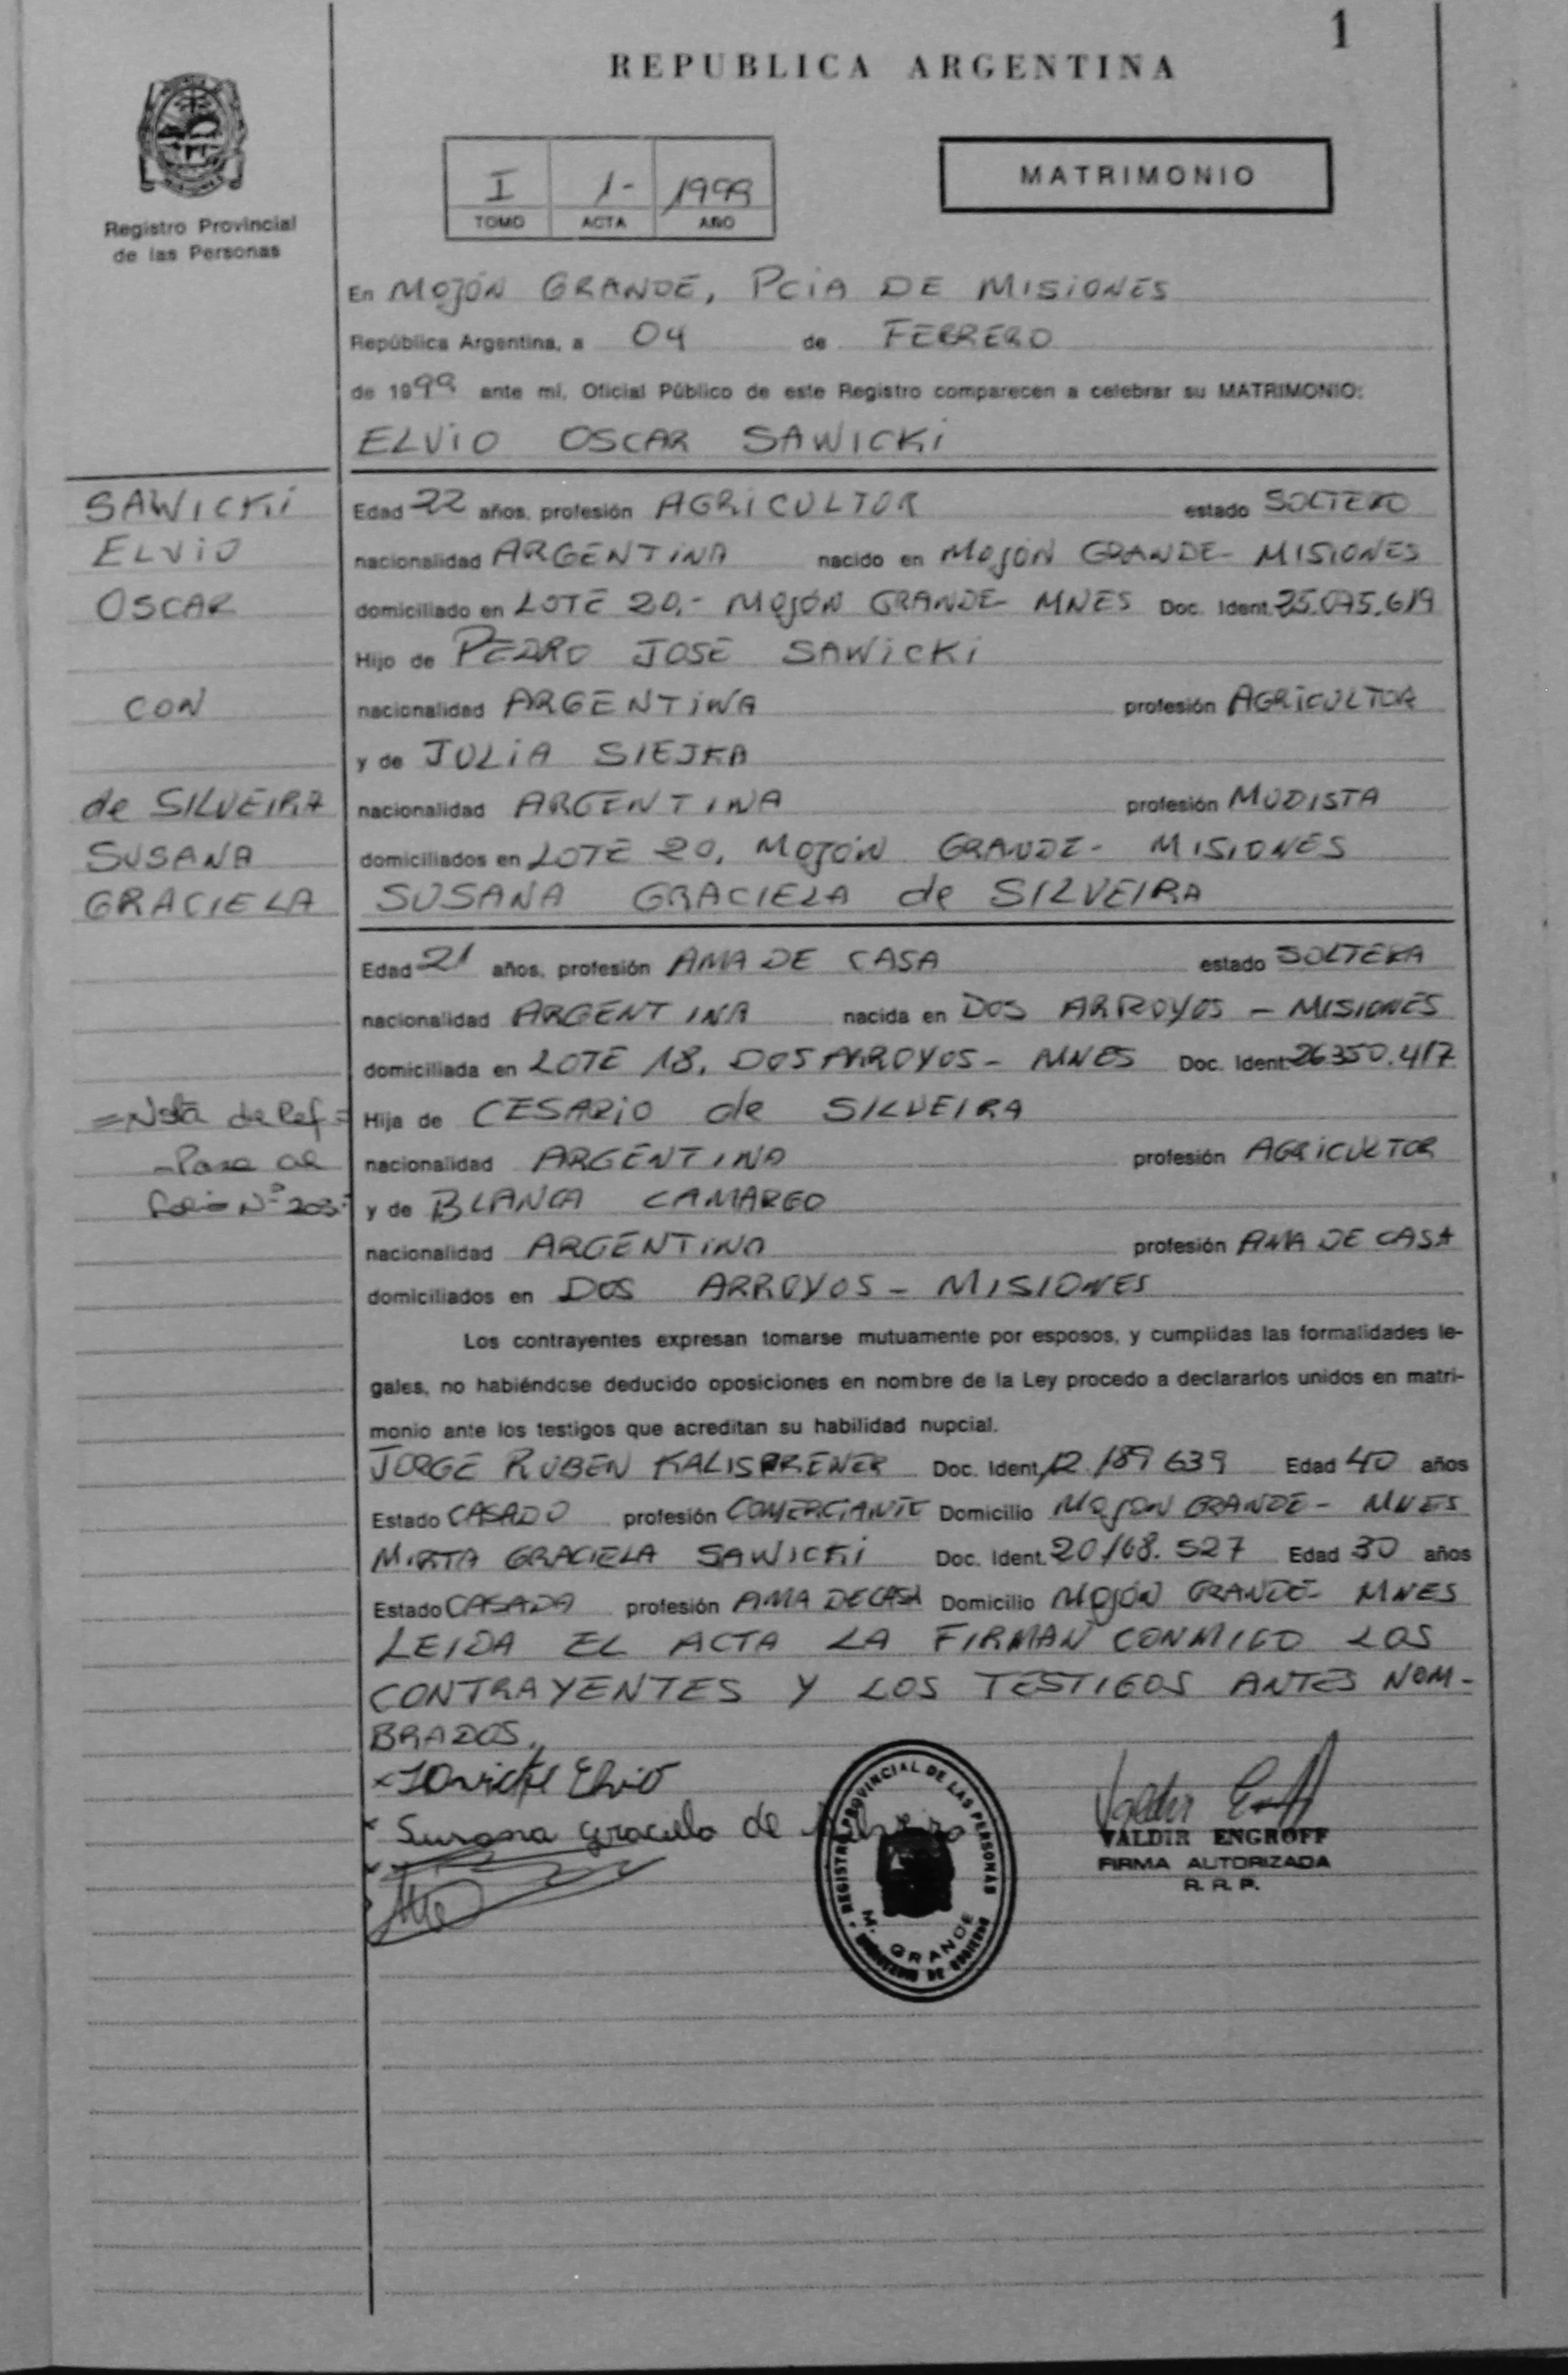 1
REPUBLICA ARGENTINA
Registro Provincial
de las Personas
I 1- 1999
TOMO ACTA AÑO
MATRIMONIO
En MOJÓN GRANDE, PCIA DE MISIONES
República Argentina, a 04 de FEBRERO
de 1999 ante mí, Oficial Público de este Registro comparecen a celebrar su MATRIMONIO:
ELVIO OSCAR SAWICKI
SAWICKI
ELVIO
OSCAR
CON
de SILVEIRA
SUSANA
GRACIELA
Edad 22 años, profesión AGRICULTOR estado SOLTERO
nacionalidad ARGENTINA nacido en MOJÓN GRANDE- MISIONES
domiciliado en LOTE 20,- MOJÓN GRANDE- MNES Doc. Ident. 25.095.619
Hijo de PEDRO JOSE SAWICKI
nacionalidad ARGENTINA profesión AGRICULTOR
y de JULIA SIEJKA
nacionalidad ARGENTINA profesión MODISTA
domiciliados en LOTE 20, MOJÓN GRANDE- MISIONES
SUSANA GRACIELA de SILVEIRA
Edad 21 años, profesión AMA DE CASA estado SOLTERA
nacionalidad ARGENTINA nacida en DOS ARROYOS - MISIONES
domiciliada en LOTE 18, DOS ARROYOS- MNES Doc. Ident. 26350.417
=Nota de Ref=
-Pasa al
folio Nº 203-
Hija de CESARIO de SILVEIRA
nacionalidad ARGENTINA profesión AGRICULTOR
y de BLANCA CAMARGO
nacionalidad ARGENTINA profesión AMA DE CASA
domiciliados en DOS ARROYOS - MISIONES
Los contrayentes expresan tomarse mutuamente por esposos, y cumplidas las formalidades le-
gales, no habiéndose deducido oposiciones en nombre de la Ley procedo a declararlos unidos en matri-
monio ante los testigos que acreditan su habilidad nupcial.
JORGE RUBEN Doc. Ident. 12.189639 Edad 40 años
Estado CASADO profesión COMERCIANTE Domicilio MOJON GRANDE- MNES
MIRTA GRACIELA SAWICKI Doc. Ident. 20168.527 Edad 30 años
Estado CASADA profesión AMA DE CASA Domicilio MOJÓN GRANDE- MNES
LEIDA EL ACTA LA FIRMAN CONMIGO LOS
CONTRAYENTES Y LOS TESTIGOS ANTES NOM-
BRADOS.
Sawicki Elvio
Susana Graciela de Silveira
REGISTRO PROVINCIAL DE LAS PERSONAS
M. GRANDE
Valdir
VALDIR ENGROFF
FIRMA AUTORIZADA
R. R. P.